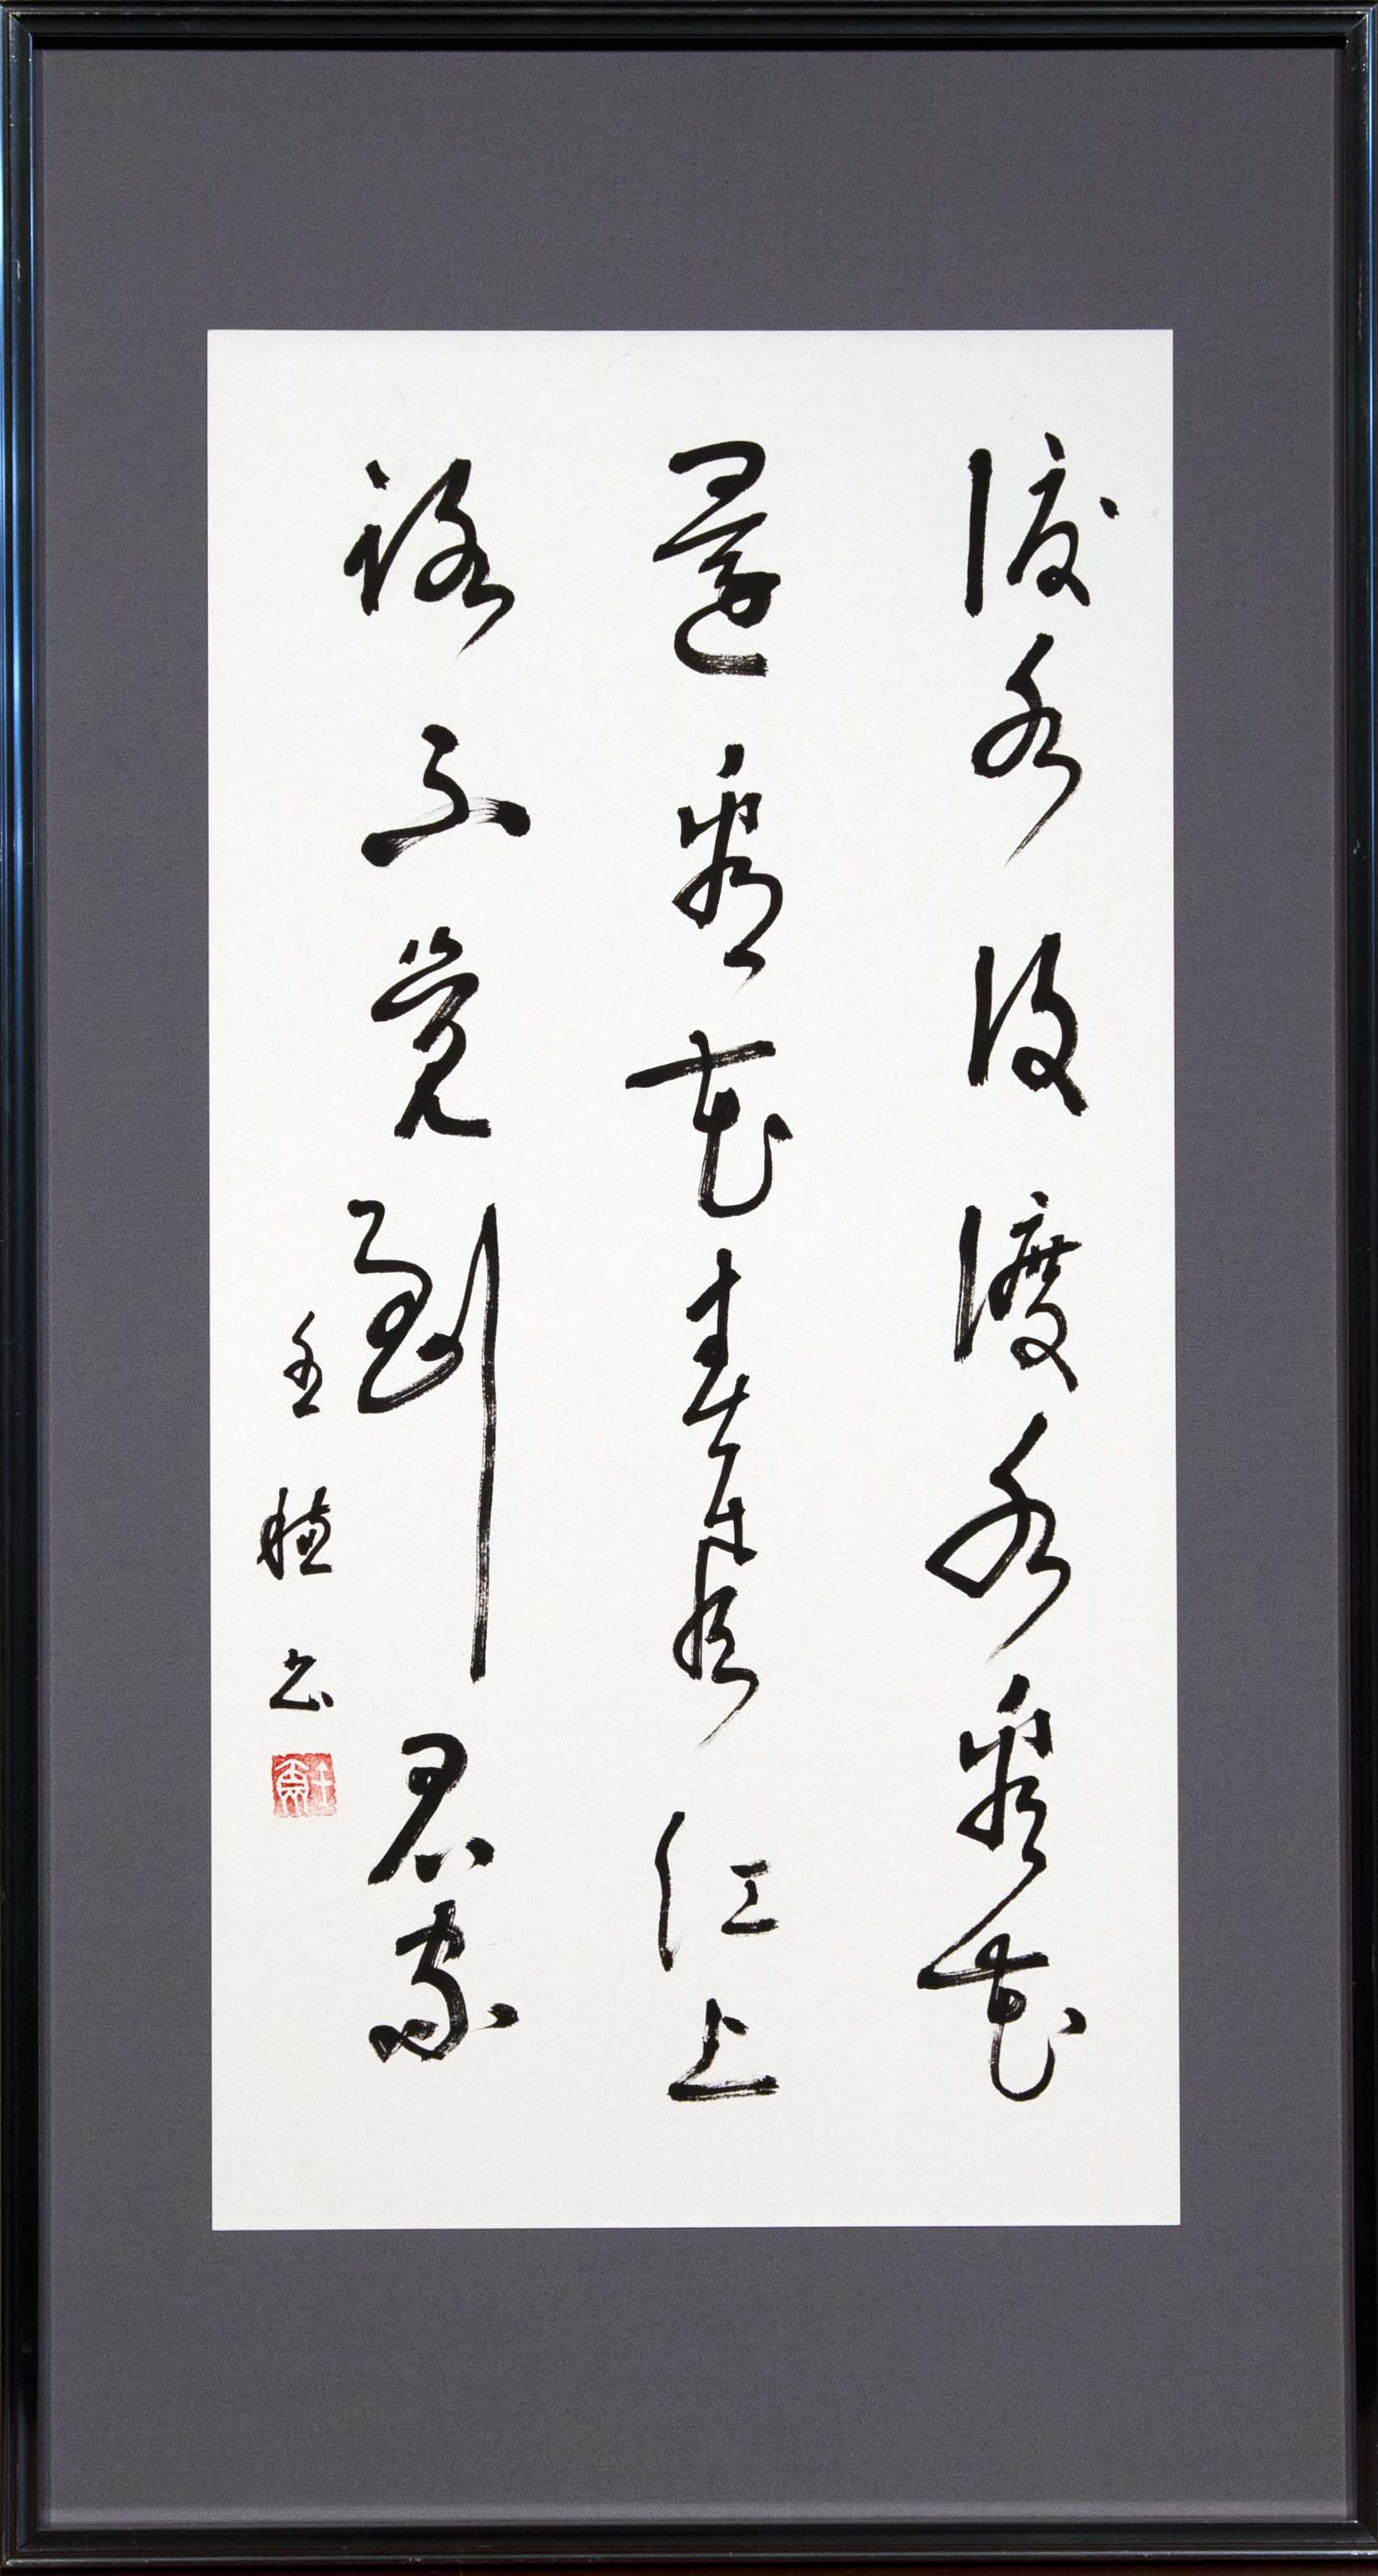 渡水復渡水看花
還看花春風江上
路不覺到君家
王 书